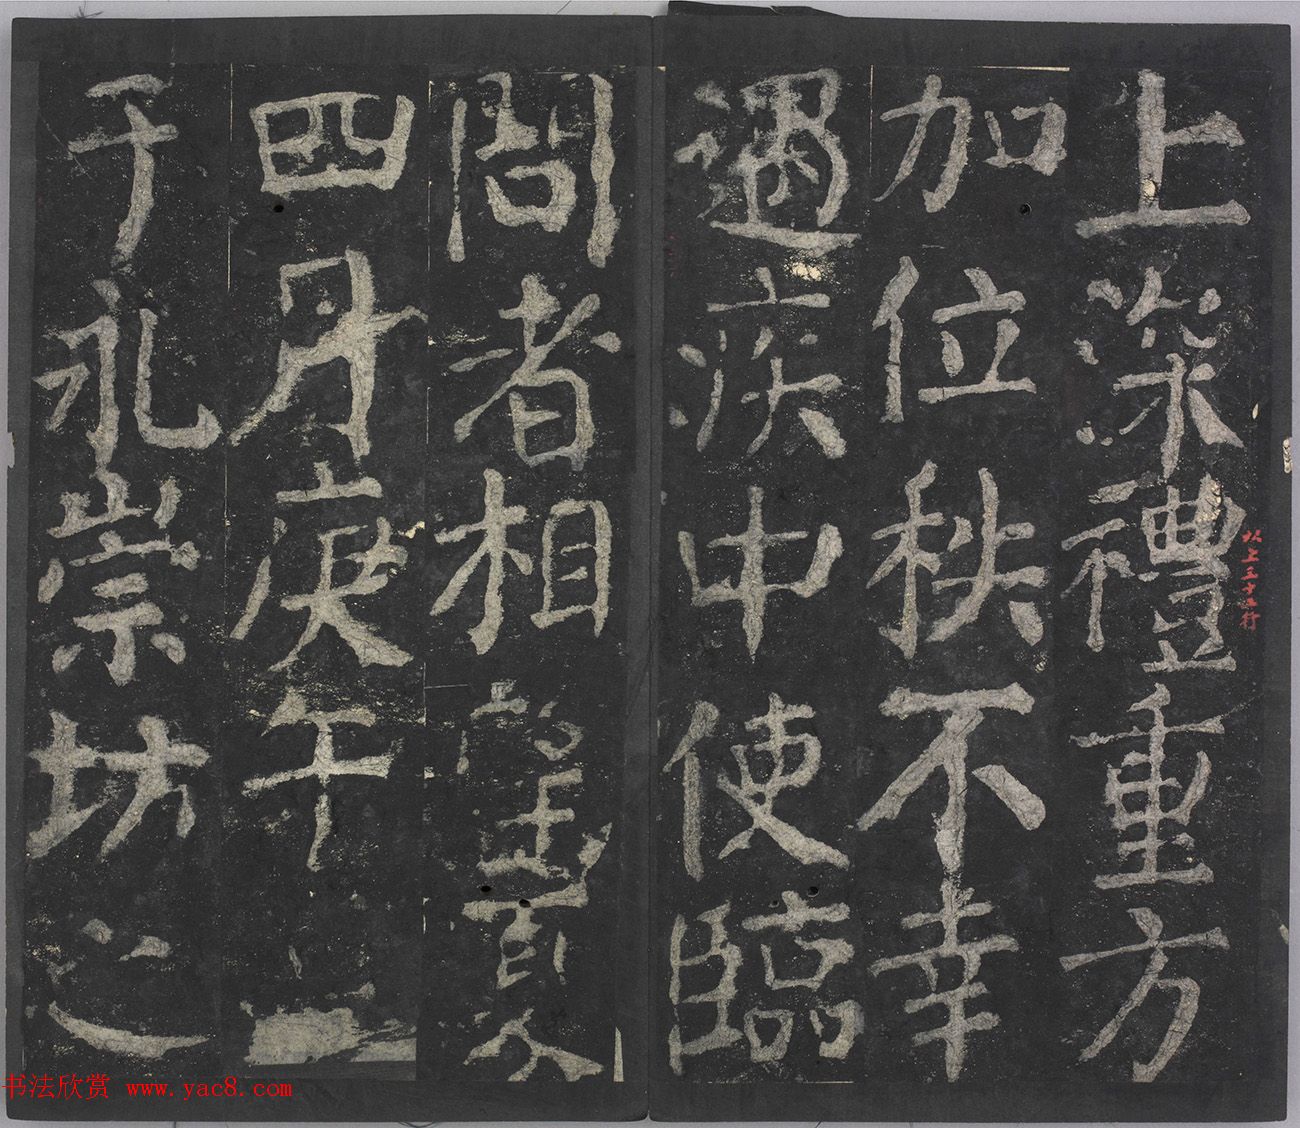 上深禮重方
加位秩不幸
遇疾中使臨
問者相望夏
四月庚午
于永崇坊之
以上三十行
书法欣赏 www.yac8.com